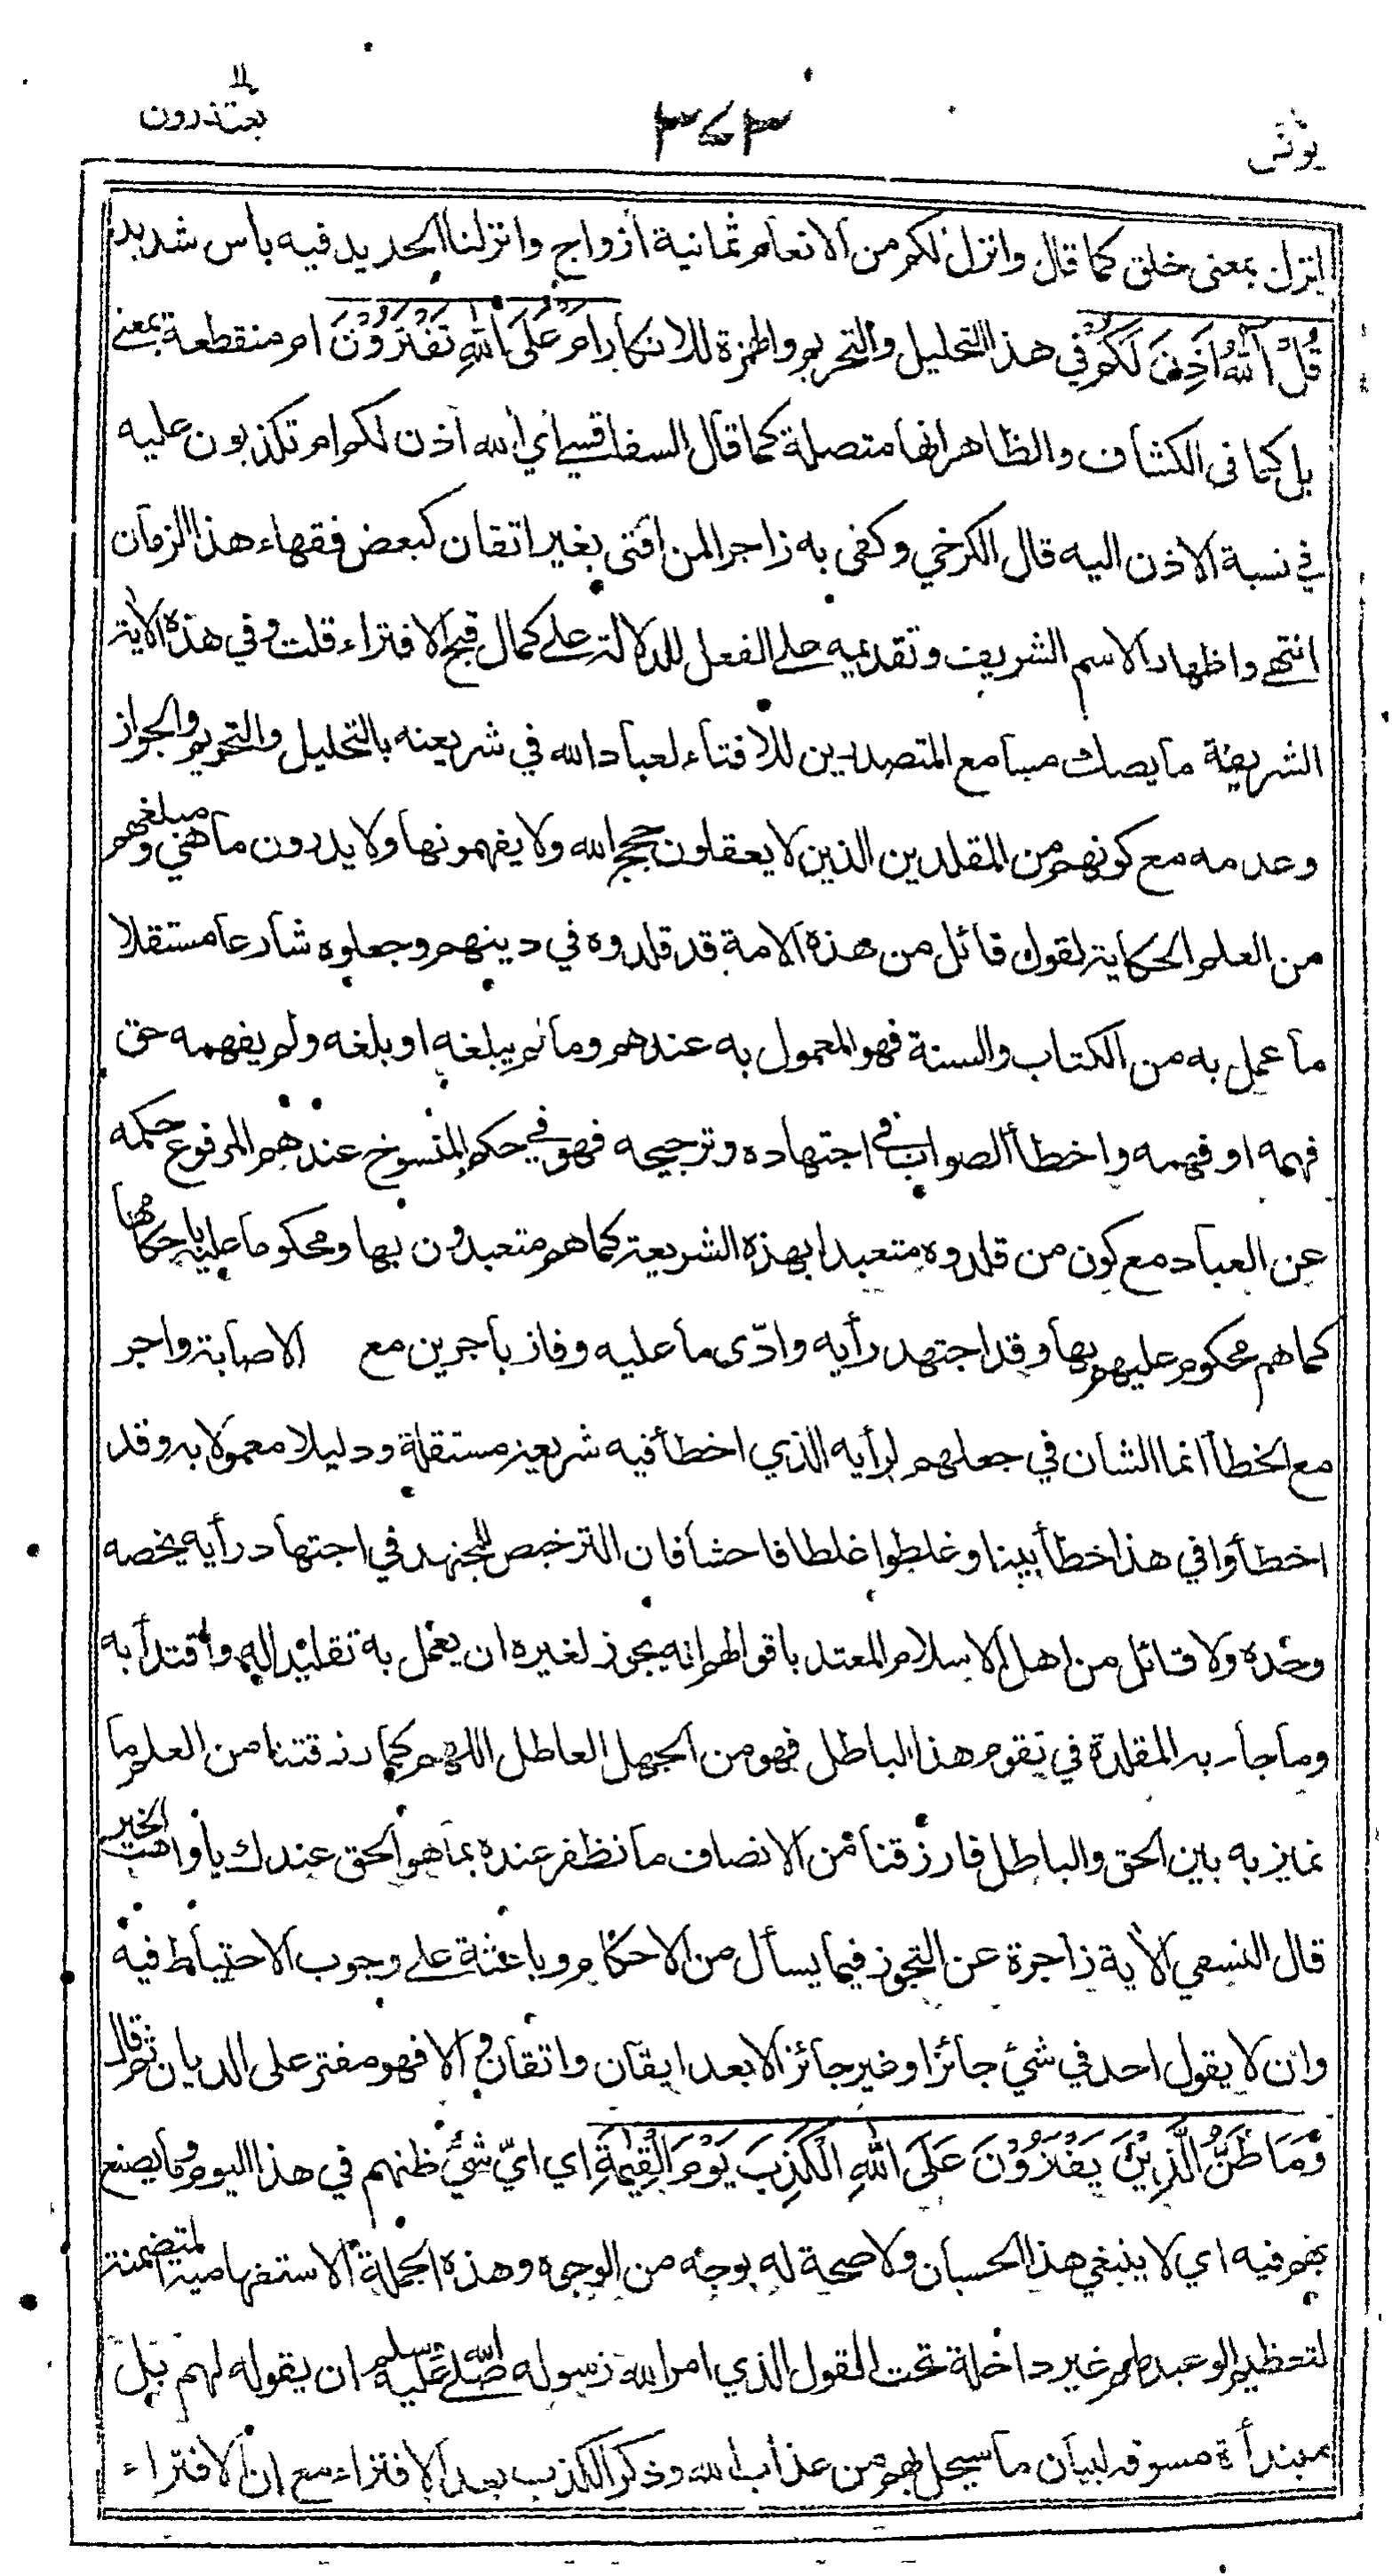 يعتذرون ١١
٣٧٣
يونس
انزل بمعنى خلق كما قال وانزل لكم من الانعام ثمانية أزواج وانزلنا الحديد فيه بأس شديد
قُلْ آللّٰهُ اَذِنَ لَكُمْ في هذا التحليل والتحريم والهمزة للانكار اَمْ عَلَى اللّٰهِ تَفْتَرُوْنَ ام منقطعة بمعنى
بل كما في الكشاف والظاهر انها متصلة كما قال السفاقسي اي الله أذن لكم ام تكذبون عليه
في نسبة الاذن اليه قال الكرخي وكفى به زاجرا لمن افتى بغير اتقان كبعض فقهاء هذا الزمان
انتهى واظهار الاسم الشريف وتقديمه على الفعل للدلالة على كمال قبح الافتراء قلت وفي هذه الاية
الشريفة ما يصك مسامع المتصدين للافتاء لعباد الله في شريعته بالتحليل والتحريم والجواز
وعدمه مع كونهم من المقلدين الذين لا يعقلون حجج الله ولا يفهمونها ولا يدرون ما هي ومبلغهم
من العلم الحكاية لقول قائل من هذه الامة قد قلدوه في دينهم وجعلوه شارعا مستقلا
ما عمل به من الكتاب والسنة فهو المعمول به عندهم وما لم يبلغه او بلغه ولم يفهمه حق
فهمه او فهمه واخطأ الصواب في اجتهاده وترجيحه فهو في حكم المنسوخ عندهم المرفوع حكمه
عن العباد مع كون من قلدوه متعبدا بهذه الشريعة كما هم متعبدون بها ومحكوما عليه باحكامها
كما هم محكوم عليهم بها وقد اجتهد رأيه وادّى ما عليه وفاز باجرين مع الاصابة واجر
مع الخطأ انما الشان في جعلهم لرأيه الذي اخطأ فيه شريعة مستقلة ودليلا معمولا به وقد
اخطأوا في هذا خطأ بينا وغلطوا غلطا فاحشا فان الترخيص للمجتهد في اجتهاد رأيه يخصه
وحده ولا قائل من اهل الاسلام المعتد باقوالهم انه يجوز لغيره ان يعمل به تقليدا له واقتداأ به
وما جاء به المقلدة في تقوم هذا الباطل فهو من الجهل العاطل اللهم كما رزقتنا من العلم ما
نميز به بين الحق والباطل فارزقنا من الانصاف ما نظفر عنده بما هو الحق عندك يا واهب الخير
قال النسفي الاية زاجرة عن التجوز فيما يسأل من الاحكام وباعثة على وجوب الاحتياط فيه
وان لا يقول احد في شئ جائز او غير جائز الا بعد ايقان واتقان والا فهو مفتر على الديان ثم قال
وَمَا ظَنُّ الَّذِيْنَ يَفْتَرُوْنَ عَلَى اللّٰهِ الْكَذِبَ يَوْمَ الْقِيٰمَةِ اي ايّ شئ ظنهم في هذا اليوم وما يصنع
بهم فيه اي لا ينبغي هذا الحسبان ولا صحة له بوجه من الوجوه وهذه الجملة الاستفهامية المتضمنة
لتعظيم الوعيد لهم غير داخلة تحت القول الذي امر الله رسوله صلى الله عليه وسلم ان يقوله لهم بل
مبتدأة مسوقة لبيان ما سيحل بهم من عذاب الله وذكر الكذب بعد الافتراء مع ان الافتراء